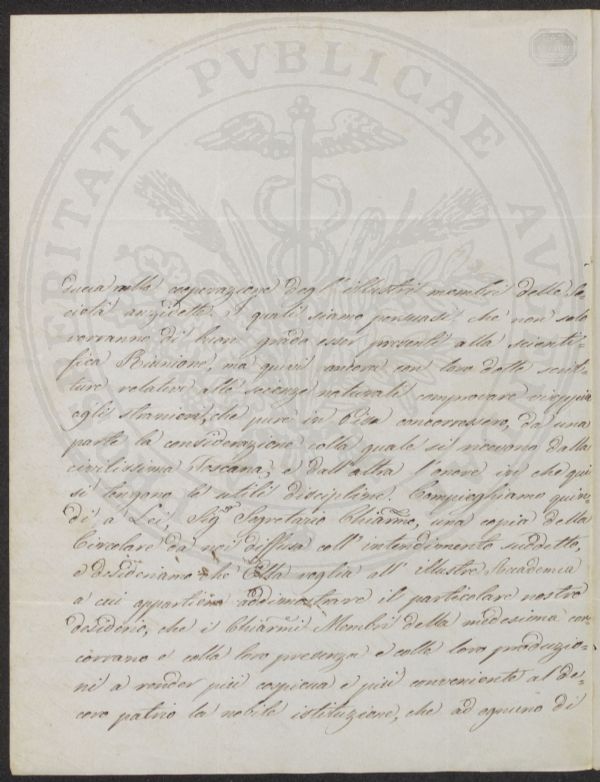 ducia nella cooperazione degl'illustri membri delle So=
cietà anzidette, i quali siamo persuasi che non solo
vorranno di buon grado esser presenti alla scienti=
fica Riunione, ma quivi ancora con loro dotte scrit=
ture relative alle scienze naturali comprovare
agli stranieri, che pure in Pisa concorressero, da una
parte la considerazione colla quale si ricevono dalla
civilissima Toscana, e dall'altra l'onore in che qui
si tengono le utili discipline. Compieghiamo quin=
di a Lei, Sigr. Segretario Chiarmo, una copia della
Circolare da noi diffusa coll'intendimento suddetto,
e desideriamo che Ella voglia all'illustre Accademia
a cui appartiene addimostrare il particolare nostro
desiderio, che i Chiarmi Membri della medesima con=
corrano e colla loro presenza e colle loro produzio=
ni a render più cospicua e più conveniente al de=
coro patrio la nobile istituzione, che ad ognuno di
PVBLICAE